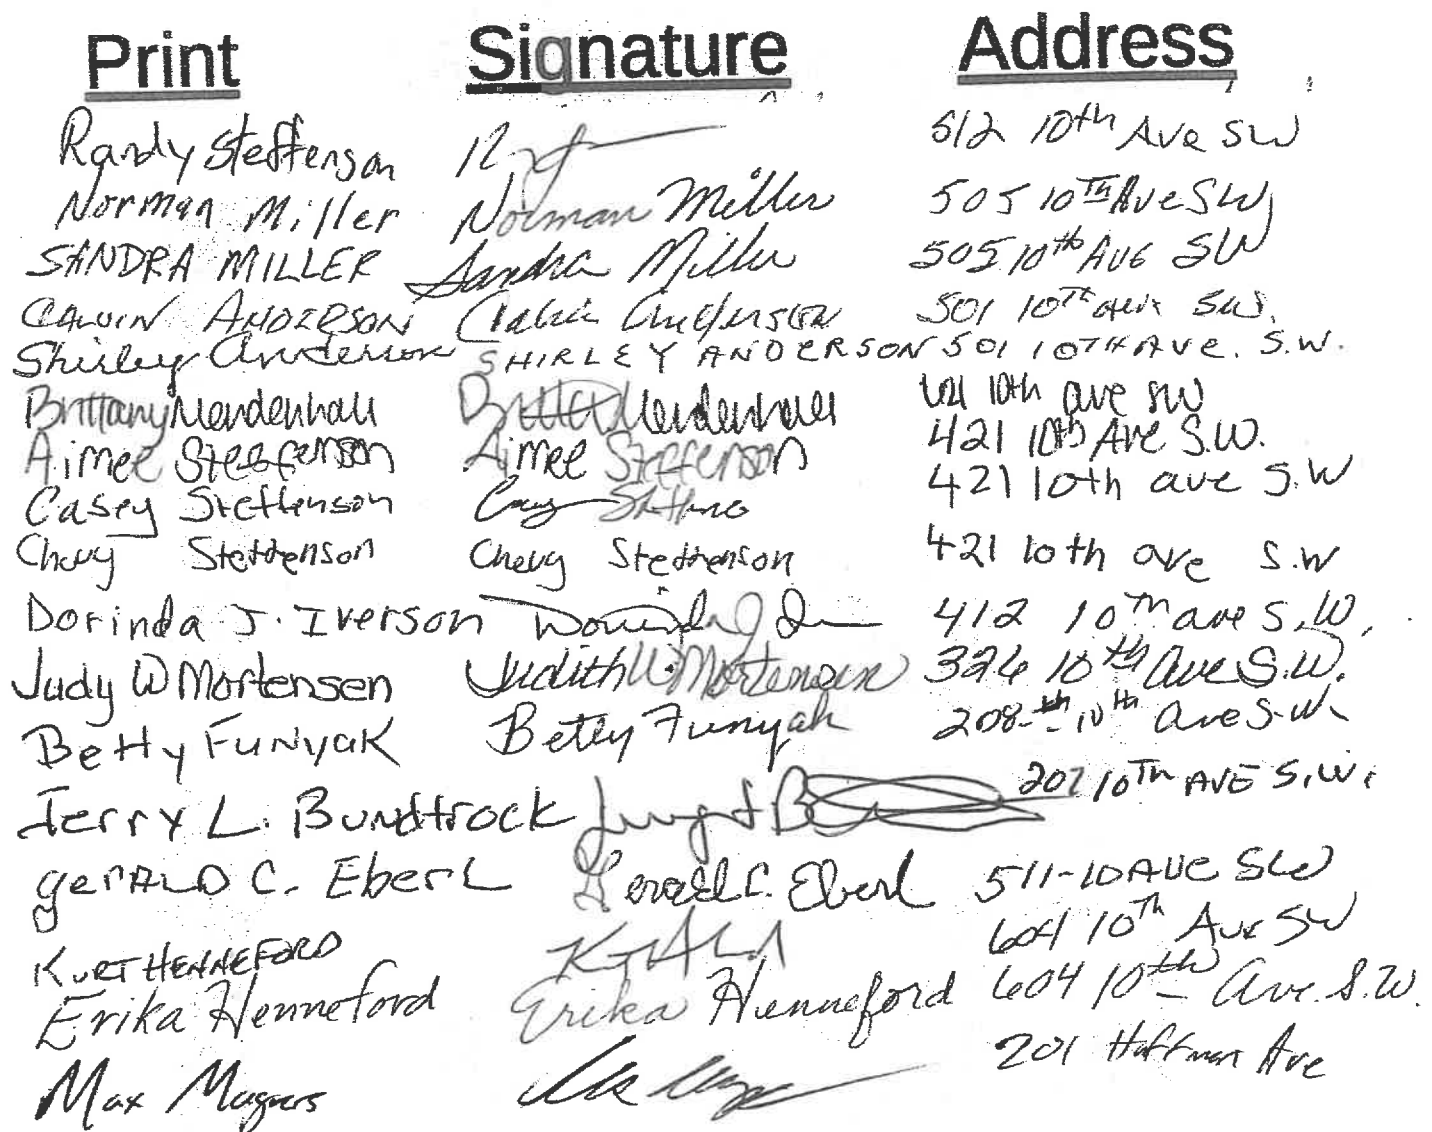 Print Signature Address
Randy Steffenson 512 10th Ave SW
Norman Miller Norman Miller 505 10TH Ave SW
SANDRA MILLER Sandra Miller 505 10th AVE SW
CALVIN ANDERSON Calvin Anderson 501 10TH ave SW.
Shirley Anderson SHIRLEY ANDERSON 501 10TH AVE. S.W.
Brittany Mendenhall Mendenhall 10th ave SW
Aimee Steffenson Aimee Steffenson 421 10th Ave S.W.
Casey Steffenson Casey 421 10th ave S.W
Chevy Steffenson Chevy Steffenson 421 10th ave S.W
Dorinda J. Iverson Dorinda J 412 10TH ave S.W.
Judy W Mortensen Judith W. Mortensen 326 10th Ave S.W.
Betty FUNYAK Betty Funyak 208- 10th Ave S.W.
Jerry L. Bundtrock 207 10TH AVE S.W.
gerALD C. EberL Gerald C. Eberl 511-10 AVE SW
KURT HENNEFORD 604 10Th Ave SW
Erika Henneford Erika Henneford 604 10th Ave. S.W.
Max Magners 201 Hoffman Ave